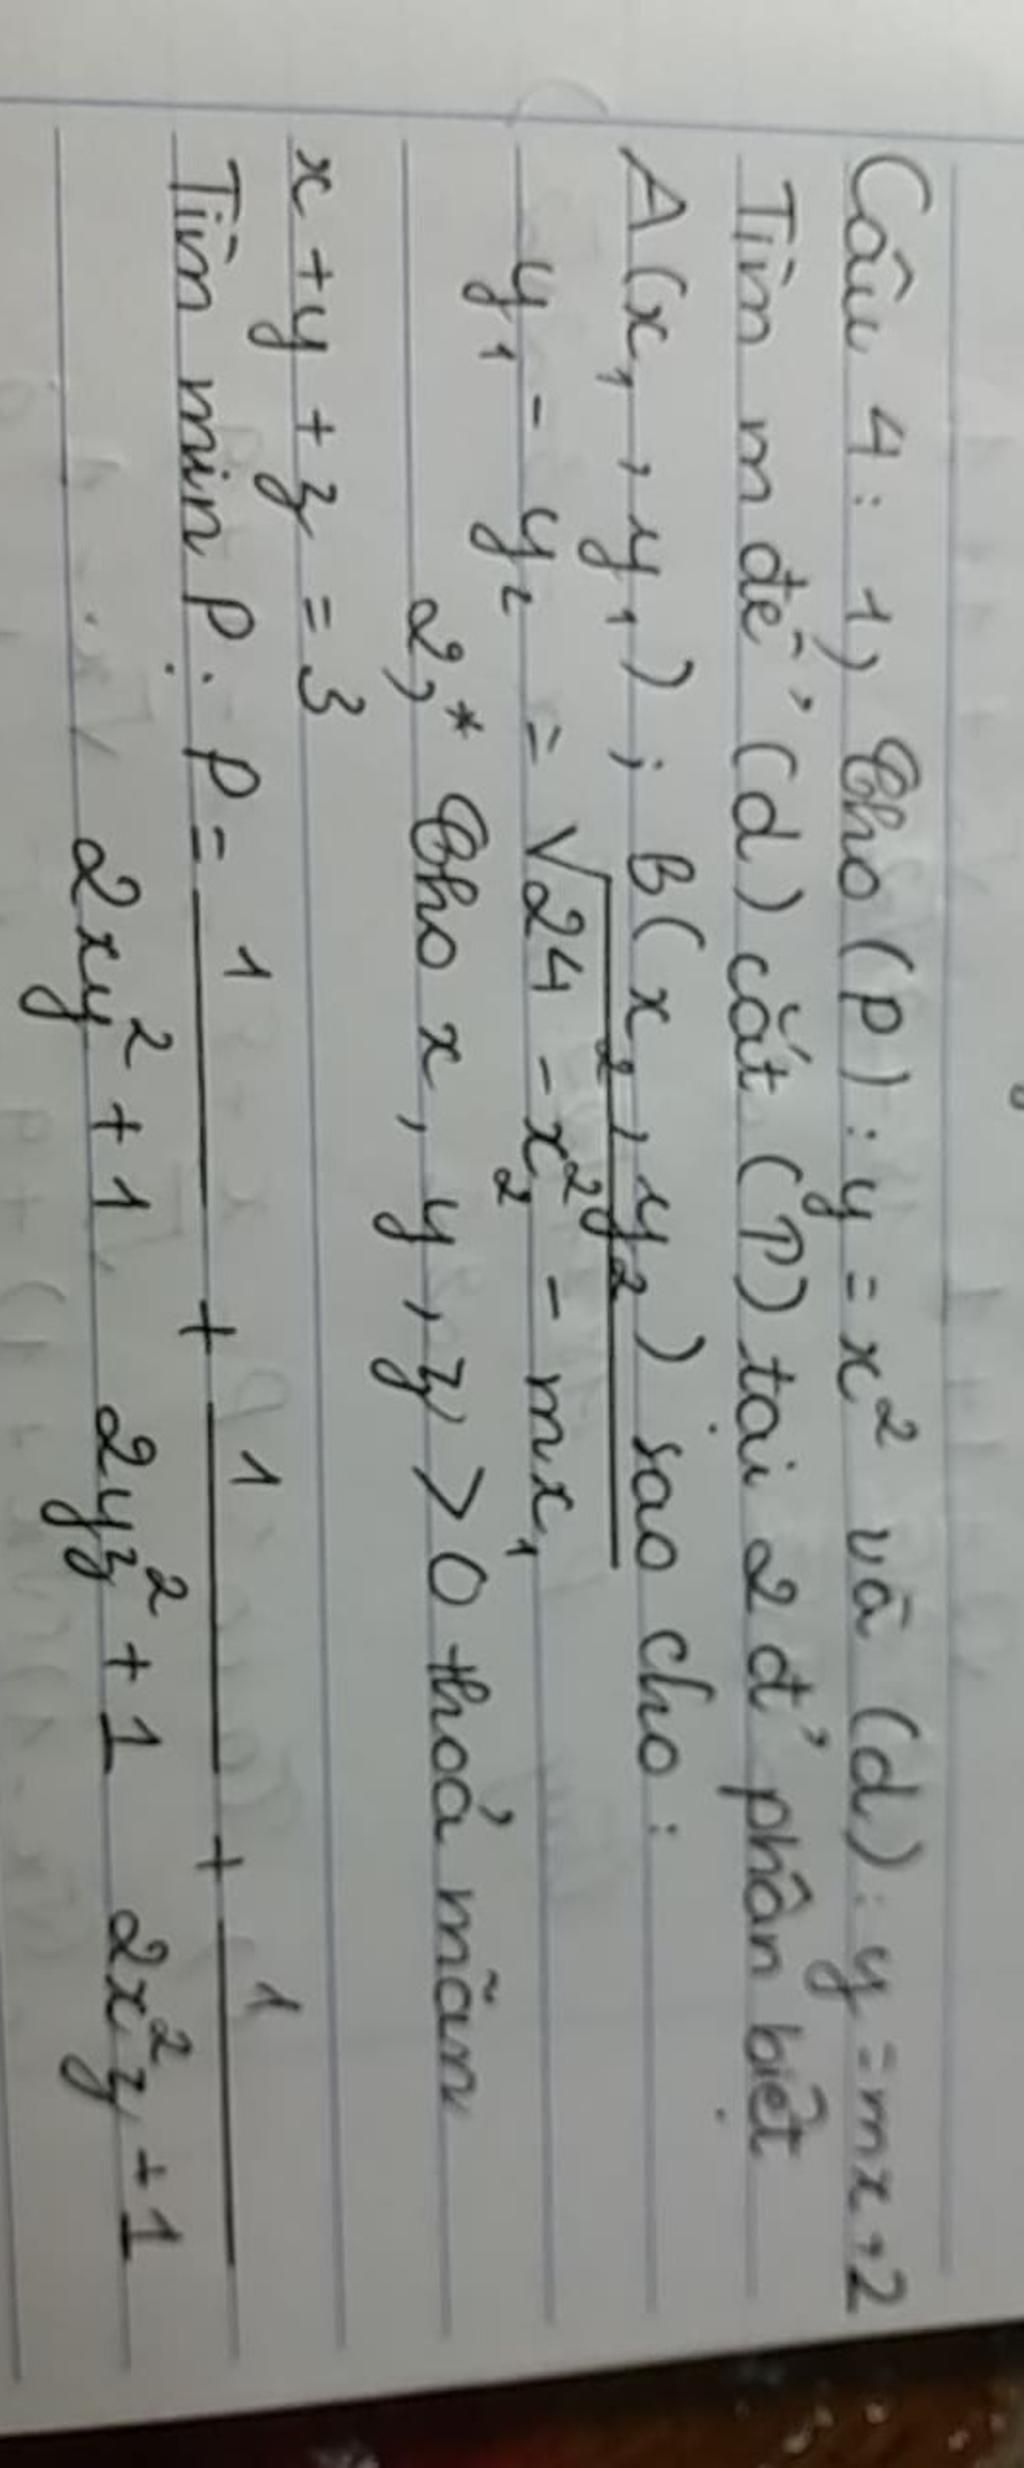 Câu 4: 1, Cho (P): y = x² và (d): y = mx + 2
Tìm m để (d) cắt (P) tại 2 đ' phân biệt
A(x₁, y₁); B(x₂, y₂) sao cho:
y₁ - y₂ = √24 - x₂² - mx₁
2,* Cho x, y, z > 0 thoả mãn
x + y + z = 3
Tìm min P: P = 1/(2xy² + 1) + 1/(2yz² + 1) + 1/(2x²z + 1)